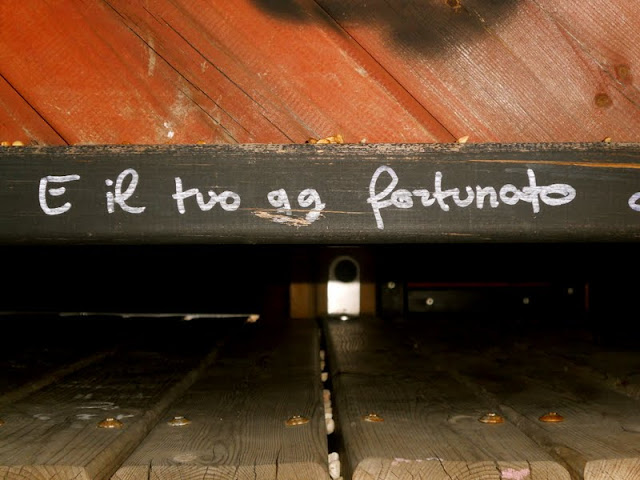 E il tuo gg fortunato